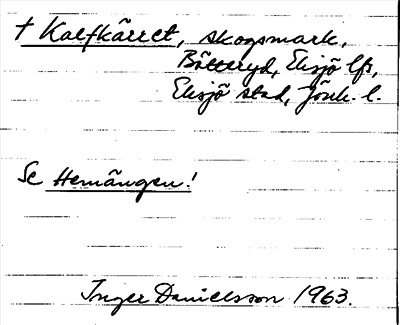 † Kalfkärret, skogsmark,
Bötteryd, Eksjö lfs,
Eksjö stad, Jönk. l.
Se Hemängen!
Inger Danielsson 1963.